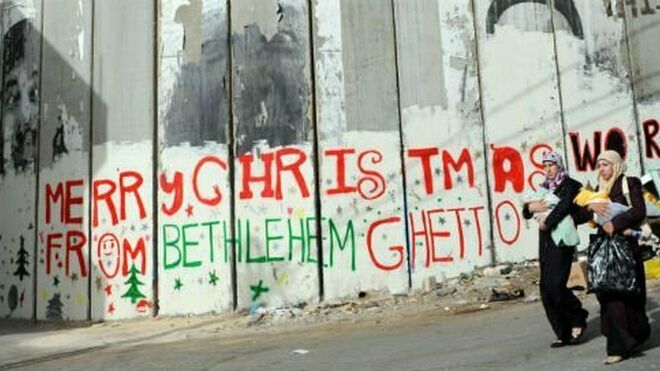 MERRY CHRISTMAS WOR
FROM BETHLEHEM GHETTO